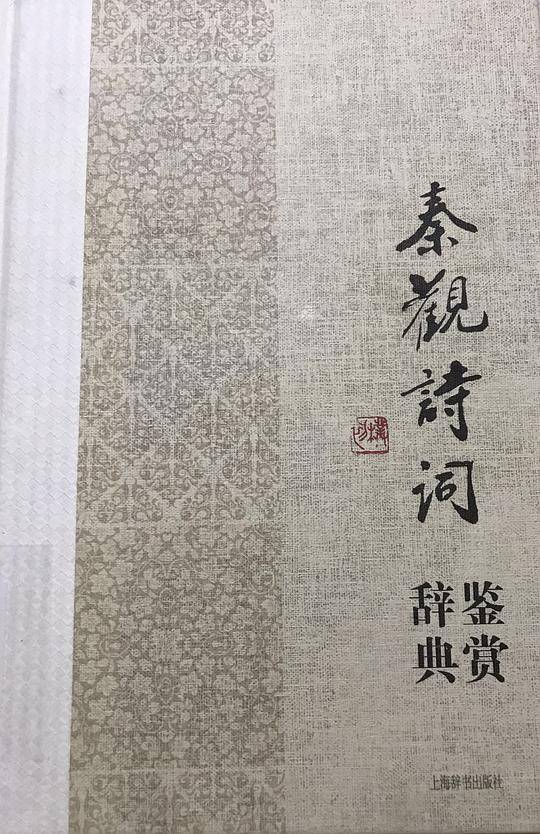 秦觀詩词
鉴赏
辞典
上海辞书出版社